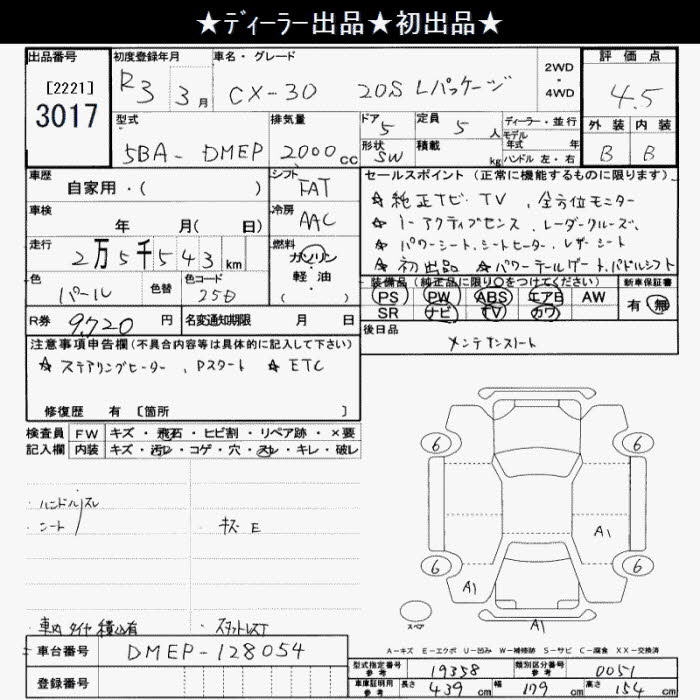 ★ディーラー出品★初出品★
出品番号 [2221] 3017
初度登録年月 R3 3月
車名・グレード CX-30 20S Lパッケージ
2WD・4WD
評価点 4.5
外装 B 内装 B
型式 5BA-DMEP
排気量 2000cc
ドア 5
形状 SW
定員 5人
積載 kg
ディーラー・並行
モデル年式 年
ハンドル 左・右
車歴 自家用・( )
シフト FAT
車検 年 月( 日)
冷房 AAC
走行 2万5千543km
燃料 ガソリン 軽・油 ( )
色 パール
色替
色コード 25D
R券 9,720円
名変通知期限 月 日
セールスポイント(正常に機能するものに限ります)
☆純正ナビ・TV、全方位モニター
☆i-アクティブセンス、レーダークルーズ、
☆パワーシート、シートヒーター、レザーシート
☆初出品 ☆パワーテールゲート、パドルシフト
装備品(純正品に限り○をつけてください)
PS PW ABS エアB AW
SR ナビ TV カワ
新車保証書 有 無
後日品 メンテナンスノート
注意事項申告欄(不具合内容等は具体的に記入して下さい)
☆ステアリングヒーター、Pスタート ☆ETC
修復歴 有 [箇所 ]
検査員記入欄
FW キズ・飛石・ヒビ割・リペア跡・×要
内装 キズ・汚レ・コゲ・穴・スレ・キレ・破レ
・ハンドルスレ
・シート
・キズE
・車内タイヤ積込有
・スタットレス
6 6
A1
6 6
A1
スペア
A1
A-キズ E-エクボ U-凹み W-補修跡 S-サビ C-腐食 XX-交換済
車台番号 DMEP-128054
登録番号
型式指定番号 参考 19358
類別区分番号 参考 0051
車庫証明用 参考 長さ 439cm 幅 179cm 高さ 154cm